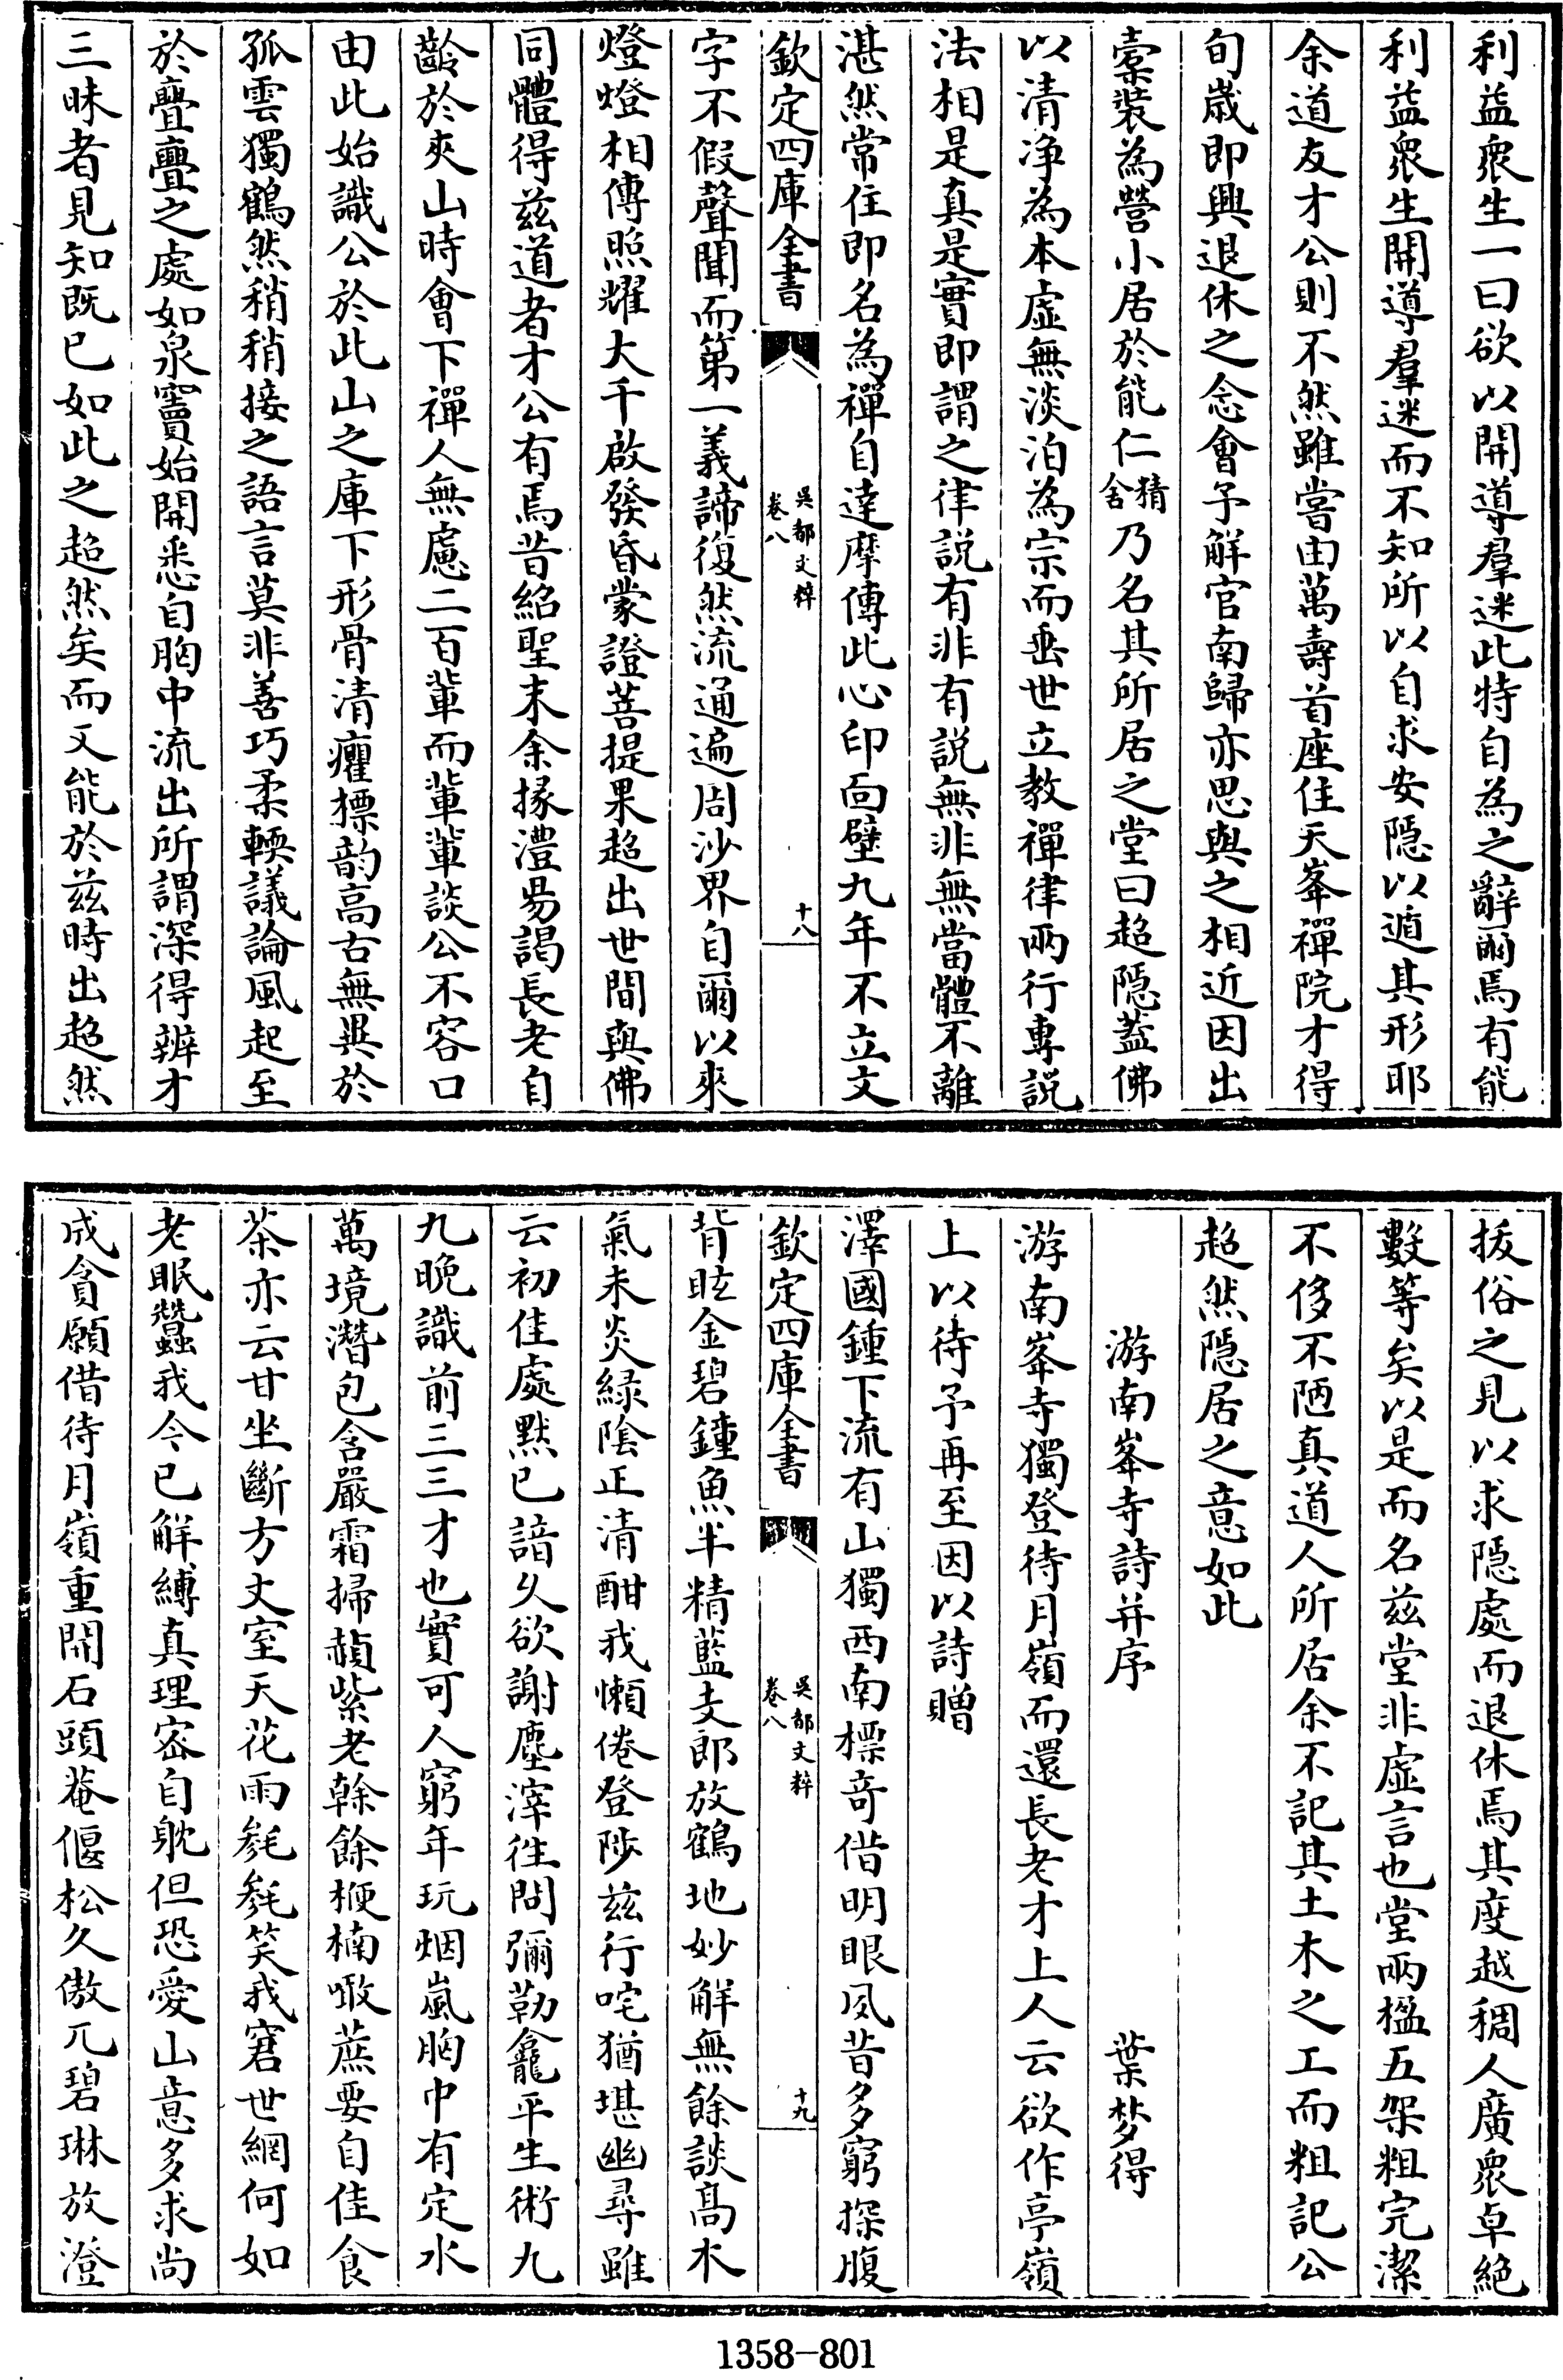 利益衆生一曰欲以開導羣迷此特自為之辭爾焉有能
利益衆生開導羣迷而不知所以自求安隱以遁其形耶
余道友才公則不然雖嘗由萬壽首座住天峯禪院才得
旬歲即興退休之念會予解官南歸亦思與之相近因出
橐裝為營小居於能仁精舍乃名其所居之堂曰超隱蓋佛
以清净為本虛無淡泊為宗而垂世立教禪律兩行專説
法相是真是實即謂之律説有非有説無非無當體不離
湛然常住即名為禪自達摩傳此心印面壁九年不立文
欽定四庫全書
吳都文粹
卷八
十八
字不假聲聞而第一義諦復然流通遍周沙界自爾以來
燈燈相傳照耀大千啟發昏蒙證菩提果超出世間與佛
同體得兹道者才公有焉昔紹聖末余掾澧易謁長老自
齡於夾山時會下禪人無慮二百輩而輩輩談公不容口
由此始識公於此山之庫下形骨清癯標韵高古無異於
孤雲獨鶴然稍稍接之語言莫非善巧柔輭議論風起至
於亹亹之處如泉竇始開悉自胸中流出所謂深得辨才
三昧者見知既已如此之超然矣而又能於兹時出超然
拔俗之見以求隱處而退休焉其度越稠人廣衆卓絶
數等矣以是而名兹堂非虛言也堂兩楹五架粗完潔
不侈不陋真道人所居余不記其土木之工而粗記公
超然隱居之意如此
游南峯寺詩并序 葉夢得
游南峯寺獨登待月嶺而還長老才上人云欲作亭嶺
上以待予再至因以詩贈
澤國鍾下流有山獨西南標奇借明眼夙昔多窮探腹
欽定四庫全書
吳都文粹
卷八
十九
背眩金碧鐘魚半精藍支郎放鶴地妙解無餘談髙木
氣未炎緑陰正清酣我懶倦登陟兹行咤猶堪幽尋雖
云初佳處黙已諳乆欲謝塵滓往問彌勒龕平生術九
九晚識前三三才也實可人窮年玩烟嵐胸中有定水
萬境潛包含嚴霜掃頳紫老榦餘楩楠噉蔗要自佳食
茶亦云甘坐斷方丈室天花雨毿毿笑我窘世網何如
老眠蠶我今已解縛真理宻自躭但恐愛山意多求尚
成貪願借待月嶺重開石頭菴偃松久傲兀碧琳放澄
1358-801